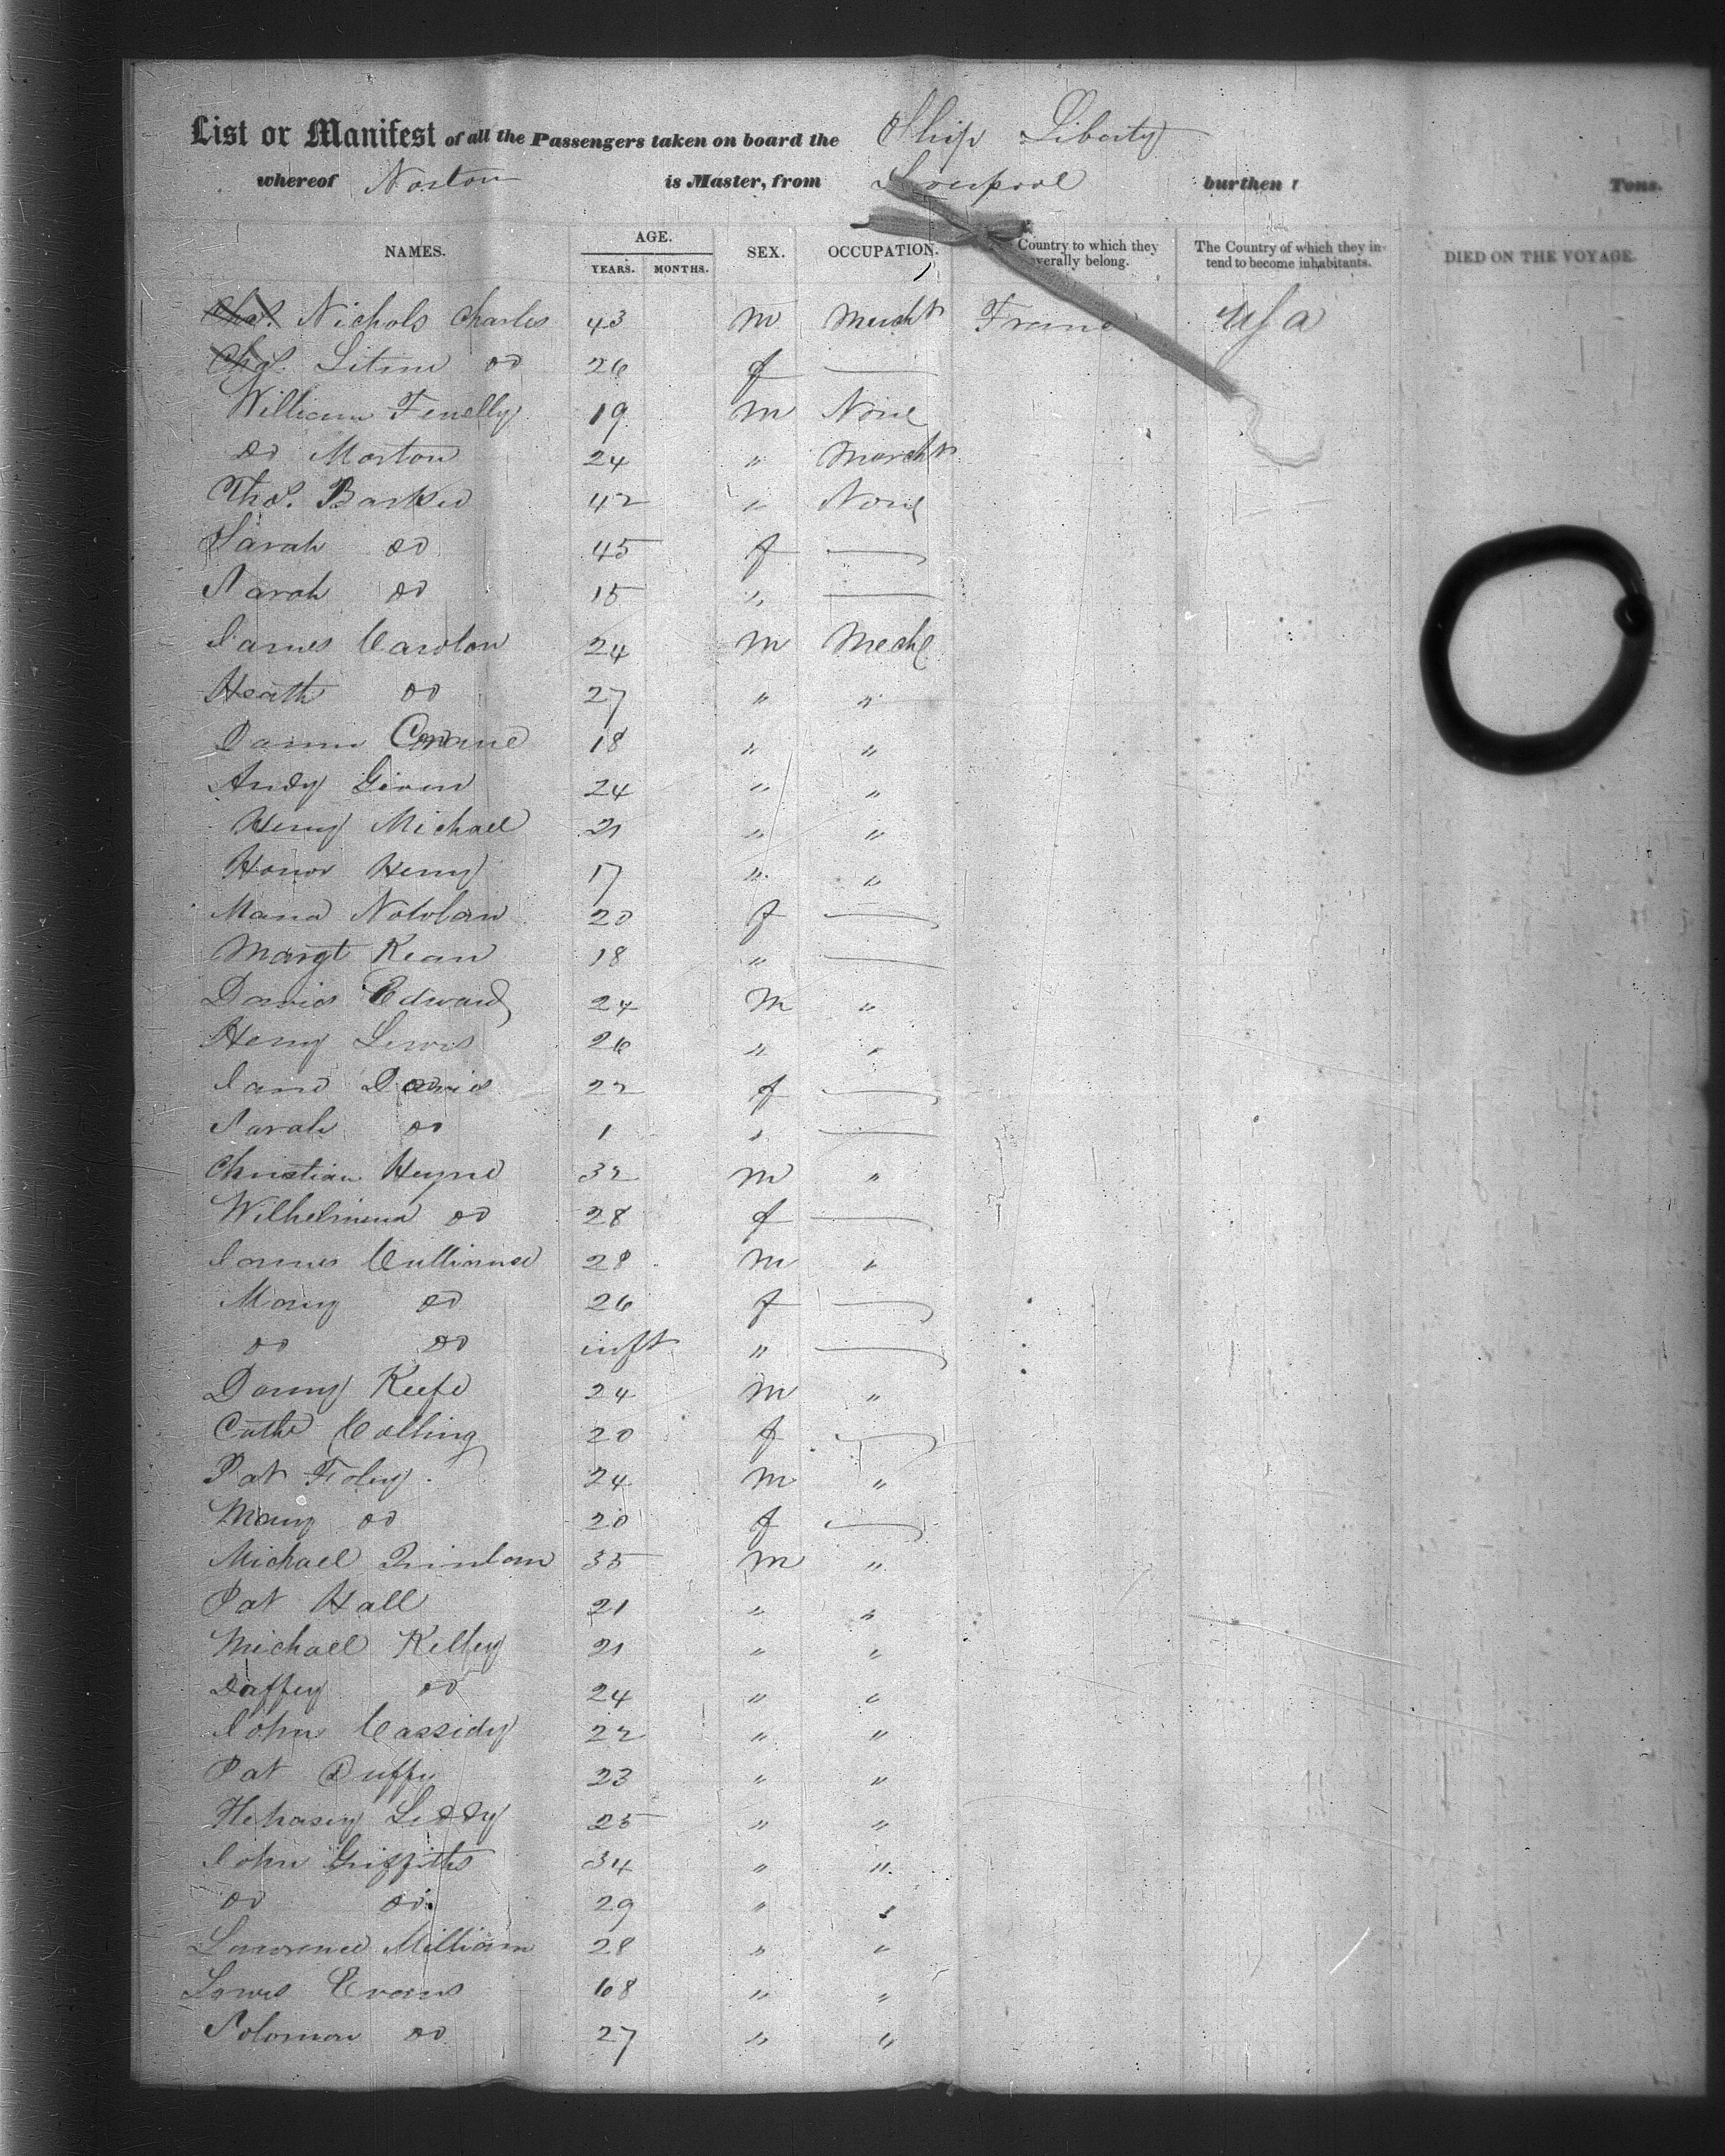 List or Manifest of all the Passengers taken on board the Ship Liberty
whereof Norton is Master, from Liverpool burthen Tons.
NAMES. AGE. YEARS. MONTHS. SEX. OCCUPATION. Country to which they verally belong. The Country of which they intend to become inhabitants. DIED ON THE VOYAGE.
Nichols Charles 43 m Mercht France Usa
do 26 f —
William Fenelly 19 m None
do Morton 24 " Mercht
Thos. Barker 42 " None
Sarah do 45 f —
Sarah do 15 " —
James Carolon 24 m Mech
Heath do 27 " "
18 " "
Andy Given 24 " "
Henry Michael 21 " "
Honor Henry 17 " "
20 f —
Margt Kean 18 " —
David Edward 24 m "
Henry Lewis 26 " "
Jane David 22 f —
Sarah do 1 " —
Christian Heyne 32 m "
Wilhelmina do 28 f —
James 28 m "
Mary do 26 f —
do do inft " —
Danny Keefe 24 m "
Cathe Colling 20 f —
Pat Foley 24 m "
Mary do 20 f —
Michael Quinlan 35 m "
Pat Hall 21 " "
Michael Kelley 21 " "
Daffey do 24 " "
John Cassidy 22 " "
Pat Duffy 23 " "
Leddy 25 " "
John Griffiths 34 " "
do do 29 " "
Lawrence Milliam 28 " "
Lewis Evans 68 " "
Solomon do 27 " "